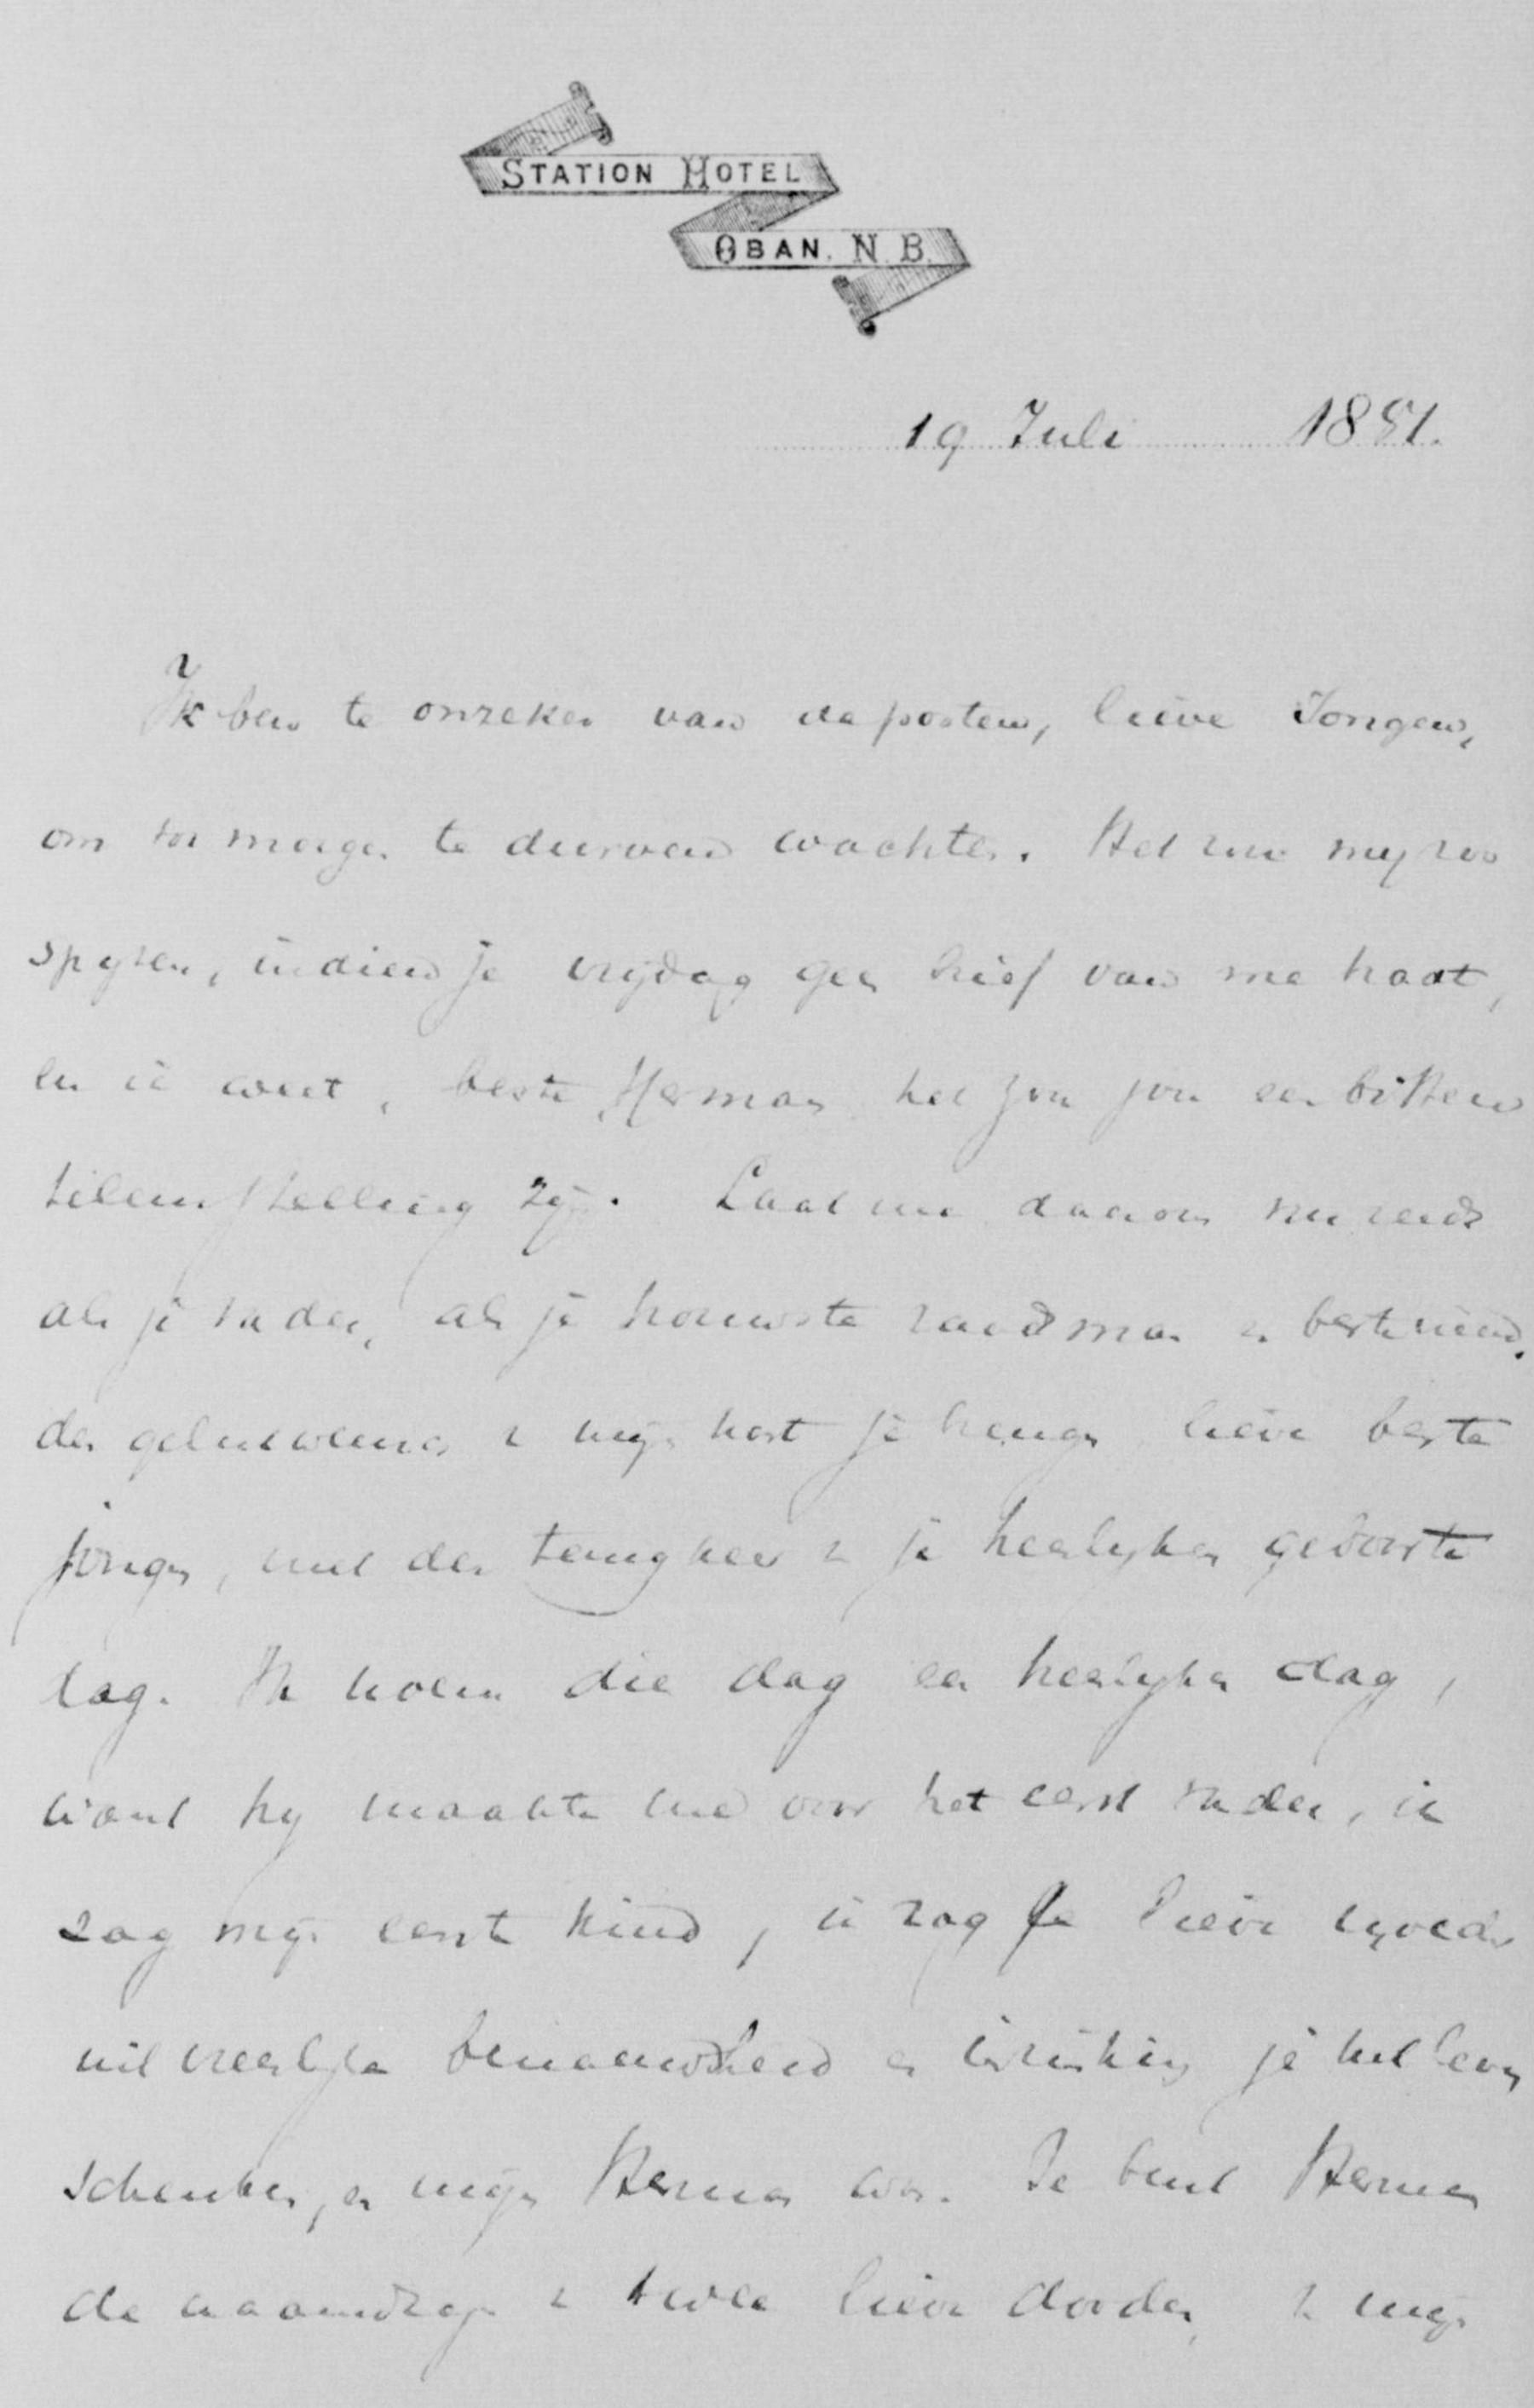 STATION HOTEL
OBAN. N. B.
19 Juli 1881.
Ik ben te onzeker van de posten, lieve Jongen,
om tot morgen te durven wachten. Het zou my zoo
spyten, indien je vrijdag geen brief van me hadt,
en ik weet, beste Herman het zou jou een bittere
teleurstelling zijn. Laat me daarom nu reeds
als je vader, als je trouwste raadsman en beste vriend,
den gelukwensch van mijn hart je brengen lieve beste
jongen, met den terugkeer van je heerlyken geboorte
dag. Ik noem die dag een heerlyken dag,
want hy maakte me voor het eerst vader, ik
zag mijn eerste kind, ik zag je lieve moeder
uit vreeslyke benauwdheid en je het leven
schenken, en mijn Herman was. Je bent Herman
de van twee lieve dooden, van mijn